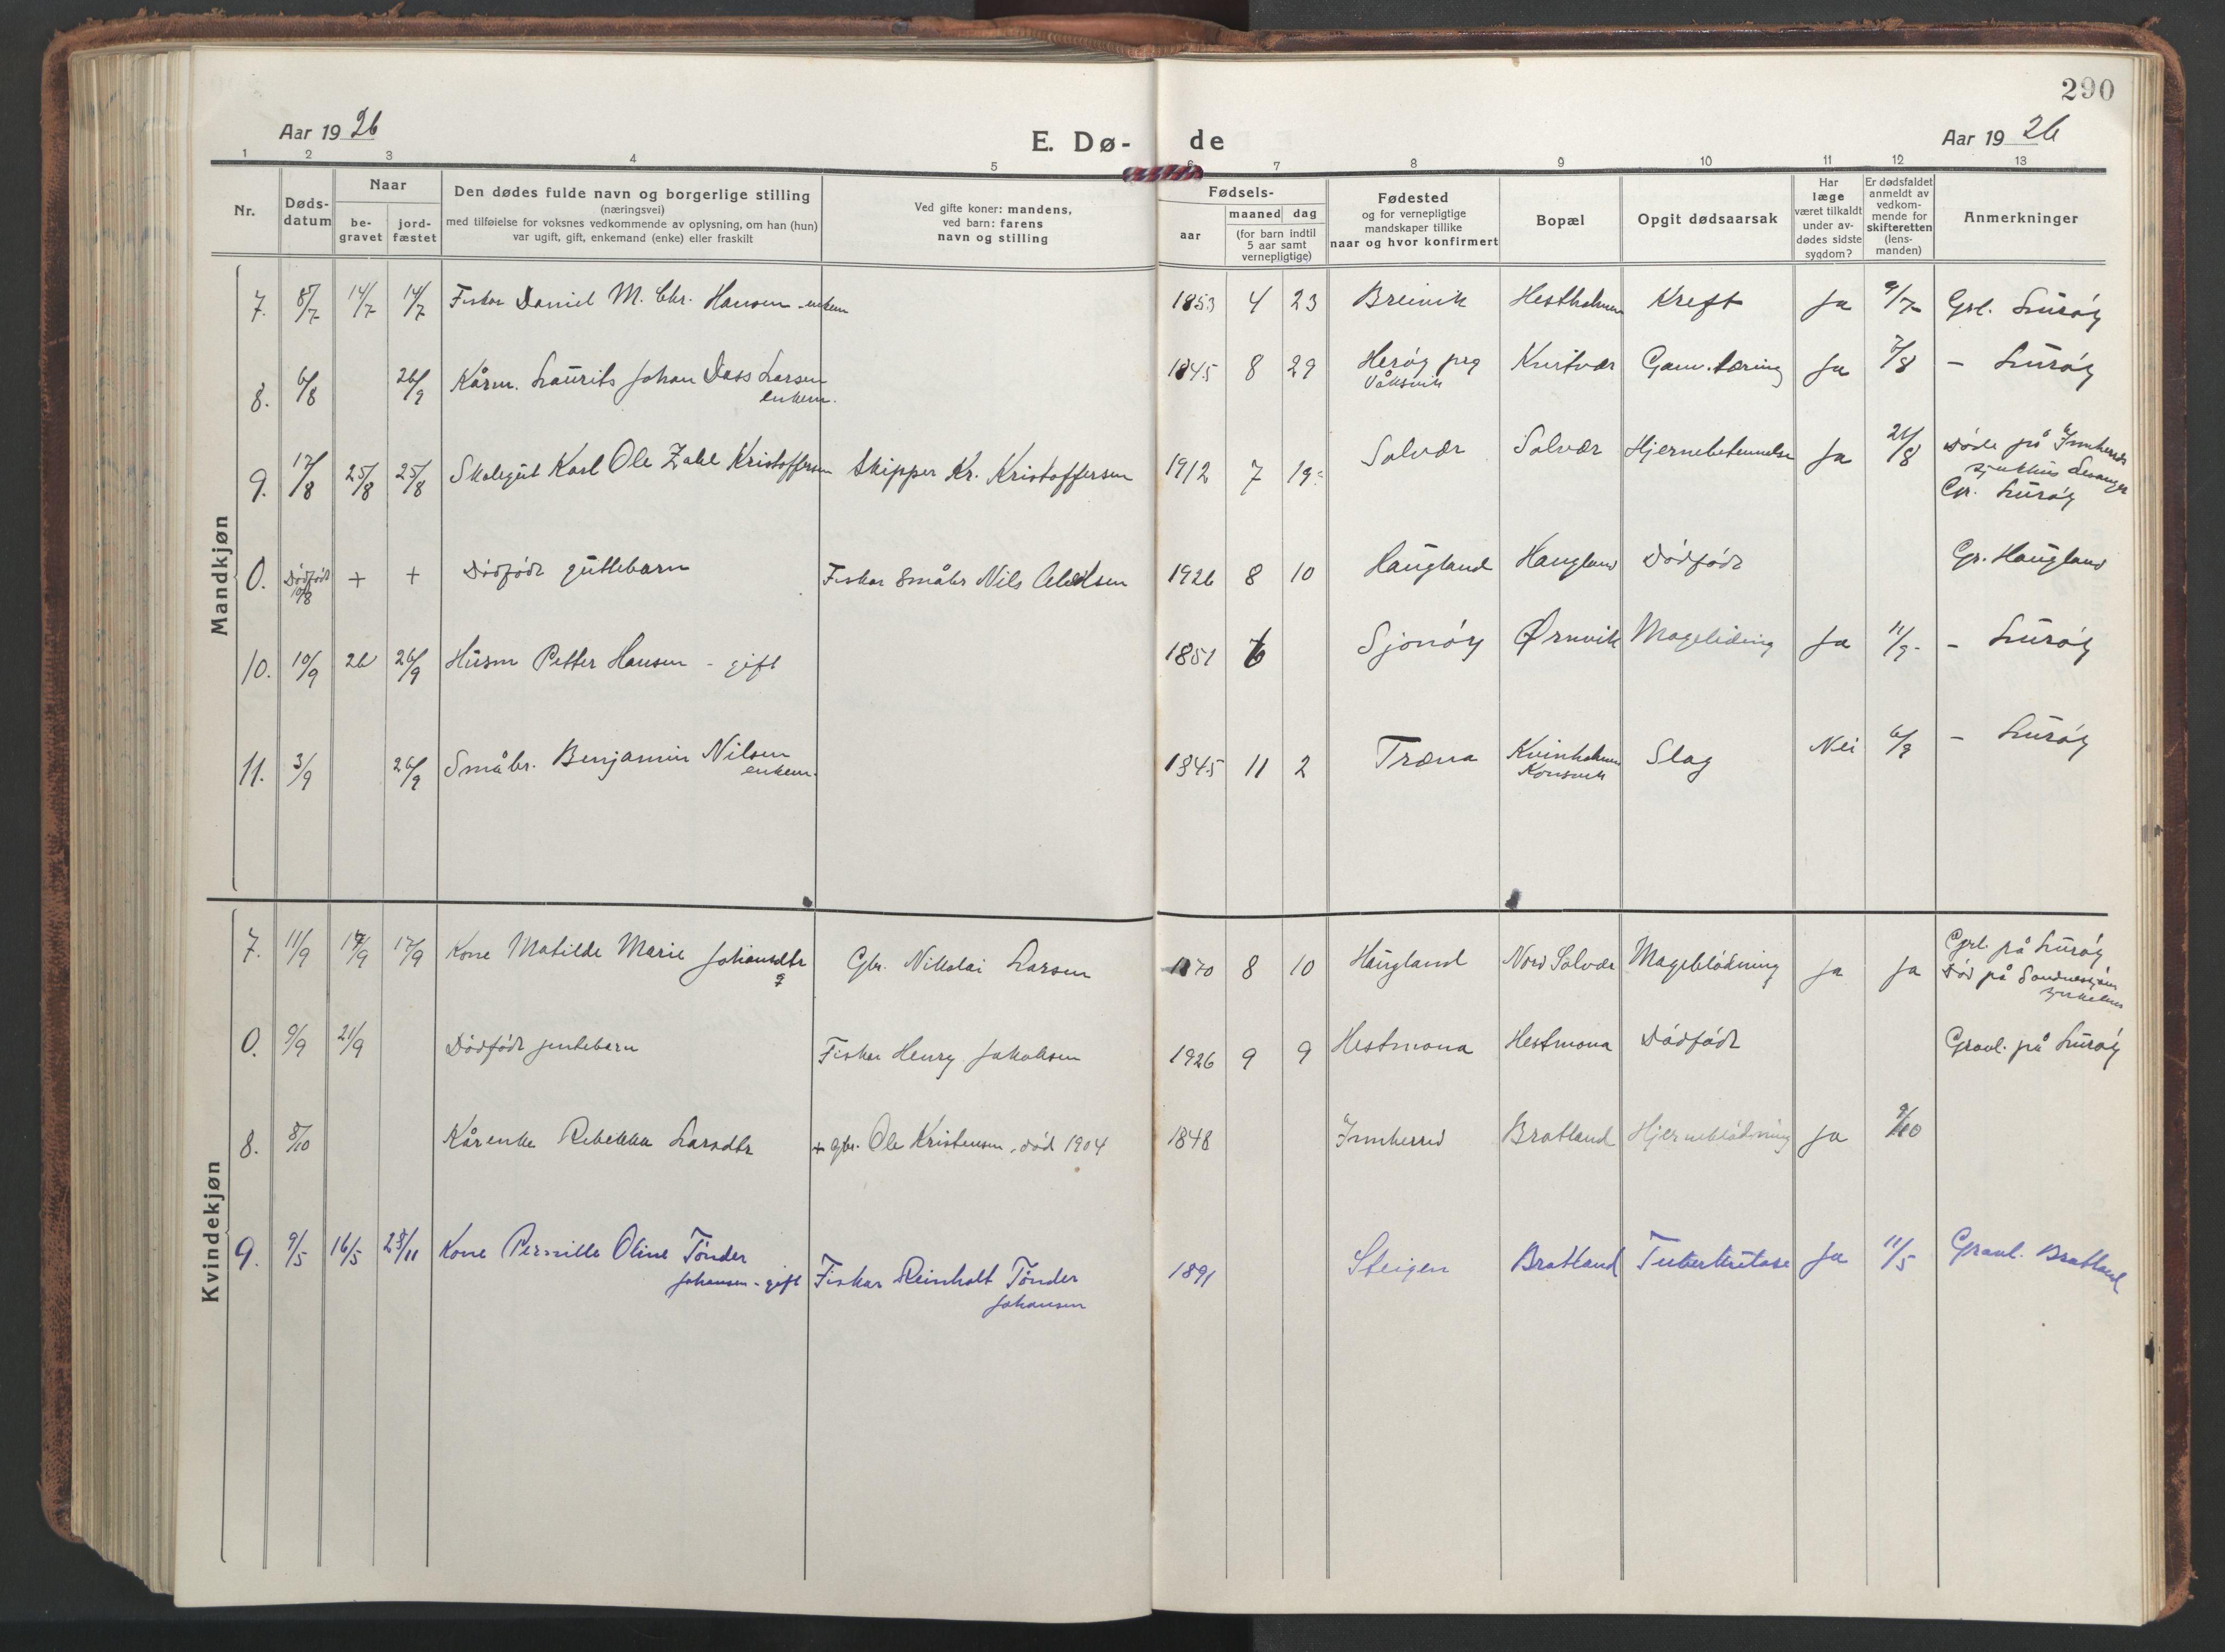 290
Aar 1926
E. Dø-
de
Aar 1926
1 2 3 4 5 6 7 8 9 10 11 12 13
Nr.
Døds-
datum
Naar
be-
gravet
jord-
fæstet
Den dødes fulde navn og borgerlige stilling
(næringsvei)
med tilføielse for voksnes vedkommende av oplysning, om han (hun)
var ugift, gift, enkemand (enke) eller fraskilt
Ved gifte koner: mandens,
ved barn: farens
navn og stilling
Fødsels-
aar
maaned dag
(for barn indtil
5 aar samt
vernepligtige)
Fødested
og for vernepligtige
mandskaper tillike
naar og hvor konfirmert
Bopæl
Opgit dødsaarsak
Har
læge
været tilkaldt
under av-
dødes sidste
sygdom?
Er dødsfaldet
anmeldt av
vedkom-
mende for
skifteretten
(lens-
manden)
Anmerkninger
Mandkjøn
7. 8/7 14/7 14/7 Fisker Daniel M. Chr. Hansen - enkem 1853 4 23 Breivik Hestholmen Kreft Ja 9/7 Grl. Lurøy
8. 6/8 26/9 Kårm. Laurits Johan Dass Larsen
enkem. 1845 8 29 Herøy prg
Våksvik Kvitvær Gam. tæring Ja 7/8 - Lurøy
9. 17/8 25/8 25/8 Skolegut Karl Ole Zahl Kristoffersen Skipper Kr. Kristoffersen 1912 7 19 Solvær Solvær Hjernebetennelse Ja 21/8 Døde på Innherreds
sjukhus Levanger
Gr. Lurøy
0. Dødfødt
10/8 + + Dødfødt guttebarn Fisker Småbr Nils 1926 8 10 Haugland Haugland Dødfødt Gr. Haugland
10. 10/9 26 26/9 Husm Petter Hansen - gift 1851 6 Sjonøy Ørnvik Mageliding Ja 11/9 - Lurøy
11. 3/9 26/9 Småbr. Benjamin Nilsen
enkem. 1845 11 2 Træna Kvinholmen
Konsvik Slag Nei 6/9 - Lurøy
Kvindekjøn
7. 11/9 17/9 17/9 Kone Matilde Marie Johansdtr
g Gbr. Nikolai Larsen 1870 8 10 Haugland Nord Solvær Mageblødning Ja Ja Grl. på Lurøy
Død på Sandnessjøen
sjukehus
0. 9/9 21/9 Dødfødt jentebarn Fisker Henry Jakobsen 1926 9 9 Hestmona Hestmona Dødfødt Gravl. på Lurøy
8. 8/10 Kårenke Rebekka Larsdtr + gbr. Ole Kristensen, død 1904 1848 Innherred Bratland Hjerneblødning Ja 9/10
9. 9/5 16/5 28/11 Kone Pernille Oline Tønder
Johansen - gift Fisker Reinholt Tønder
Johansen 1891 Steigen Bratland Tuberkulose Ja 11/5 Gravl. Bratland